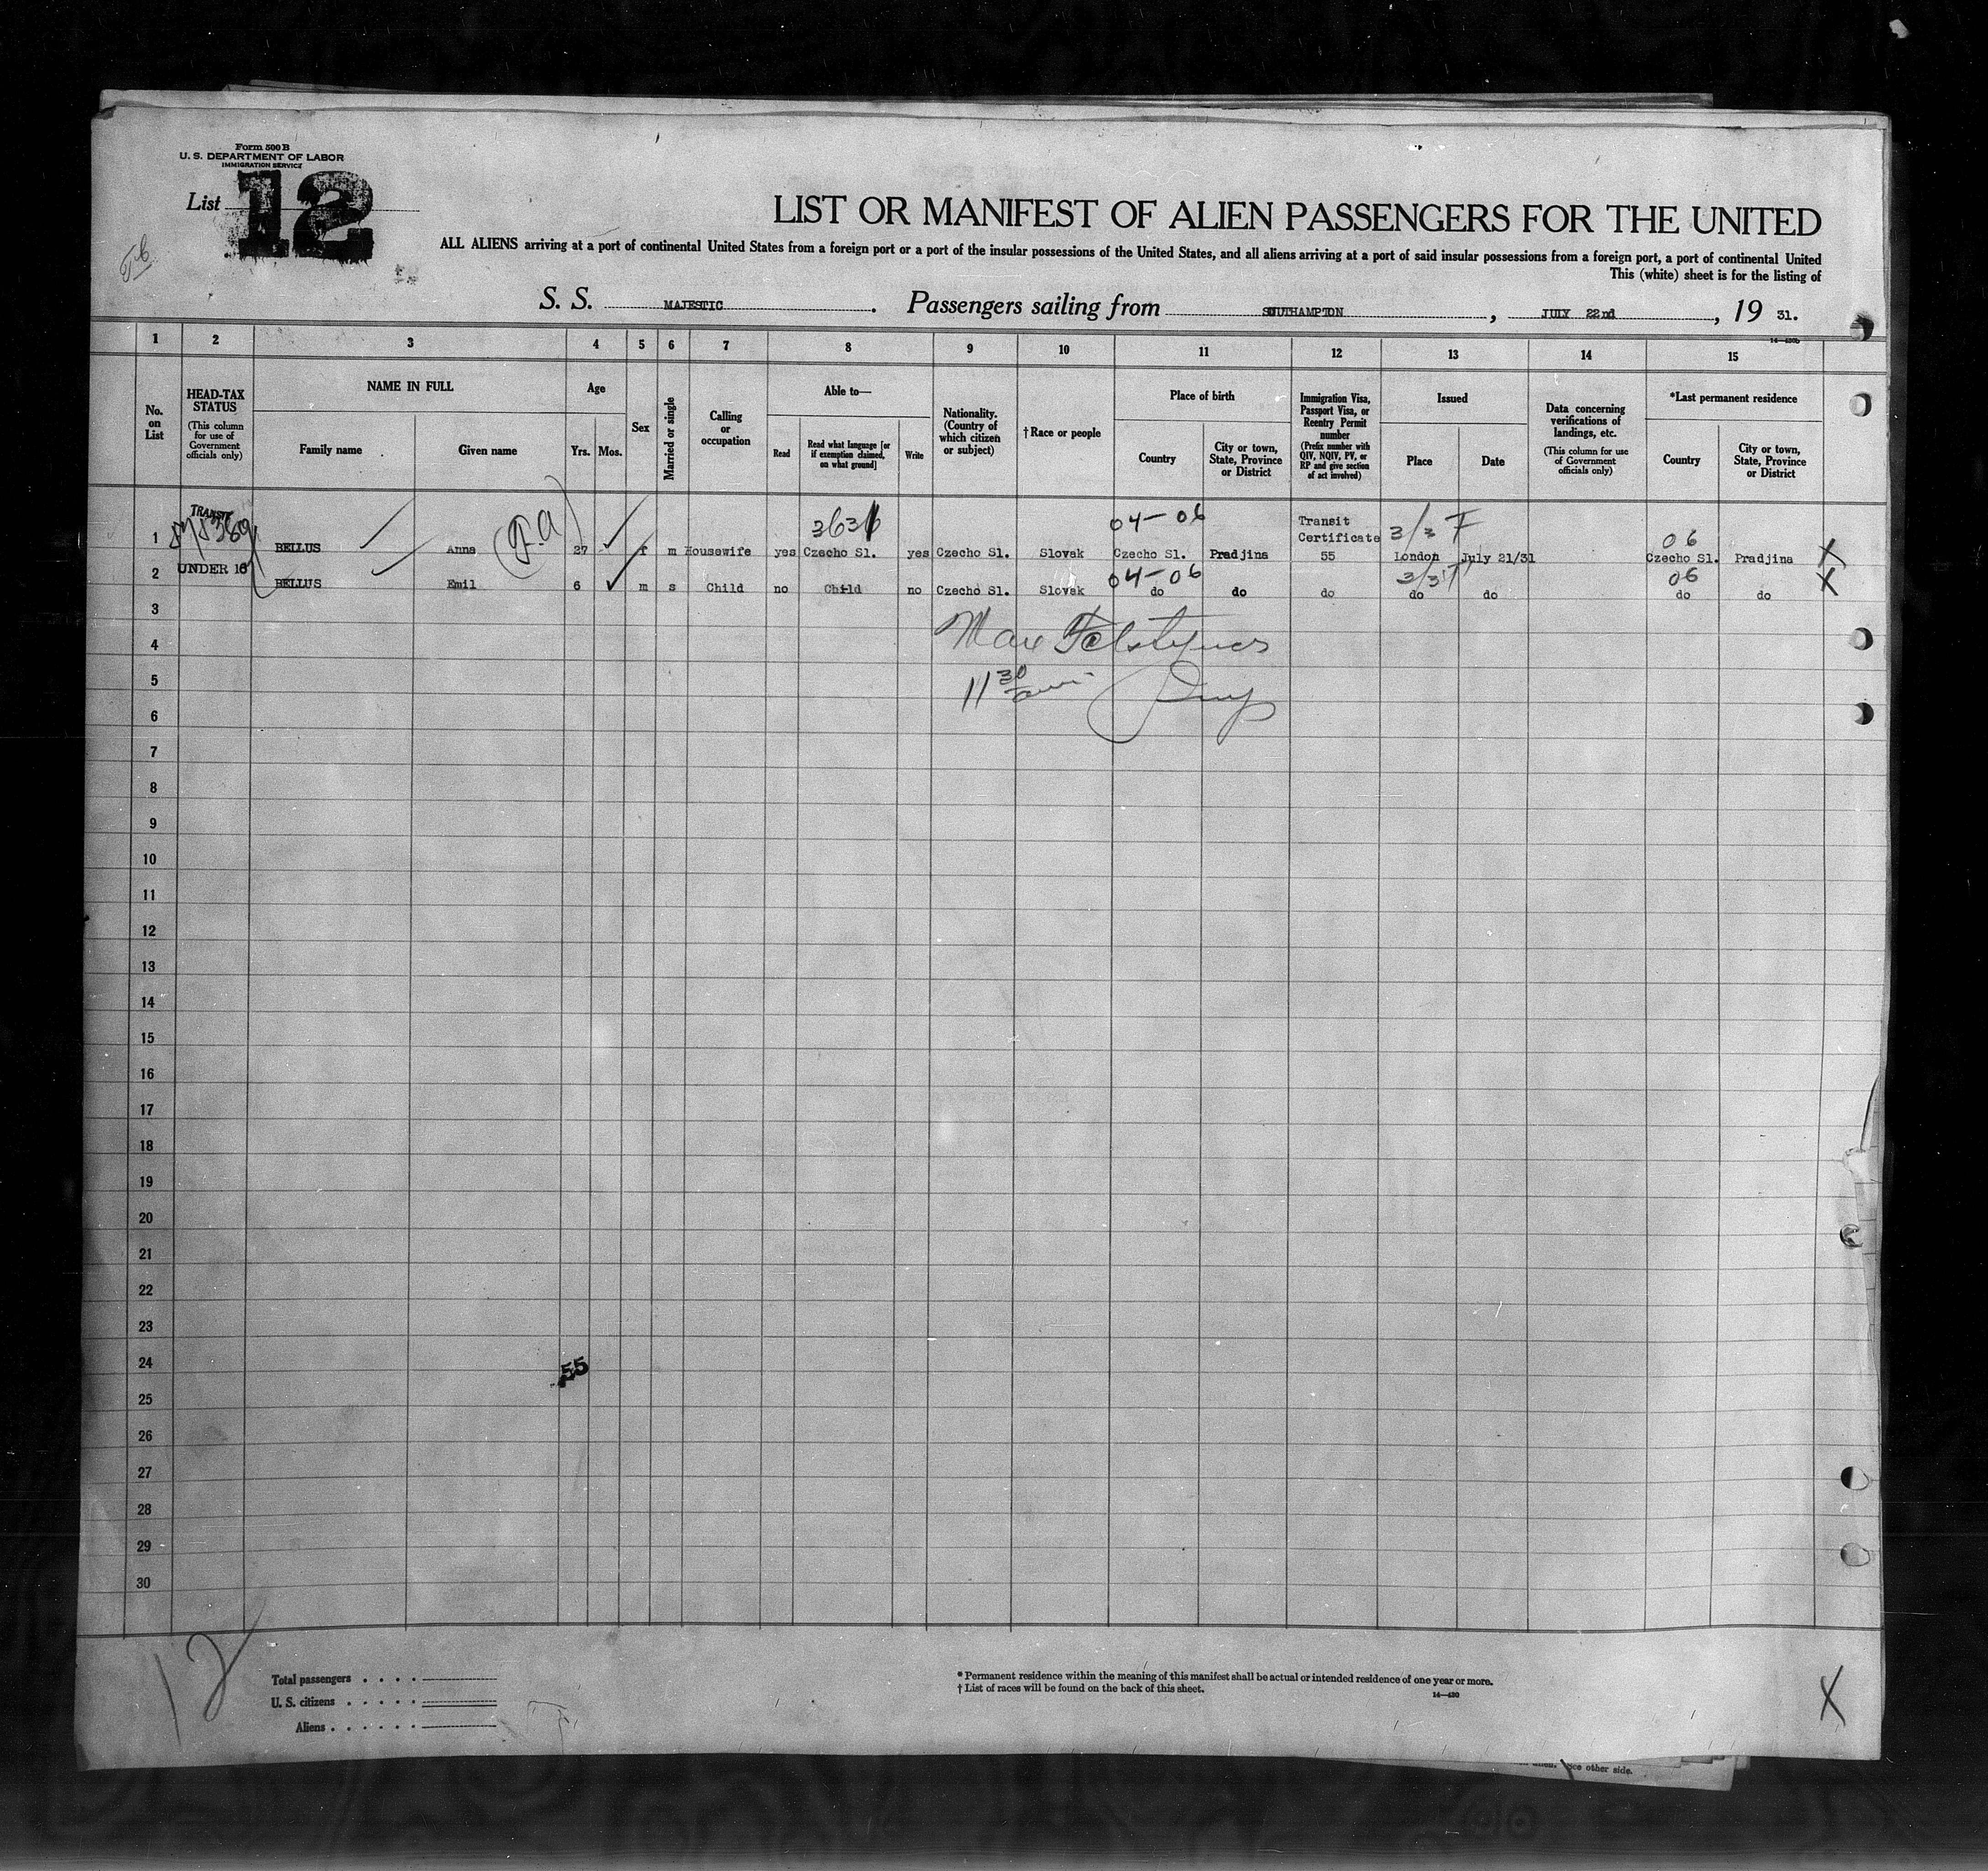 Form 500 B
U. S. DEPARTMENT OF LABOR
IMMIGRATION SERVICE
List 12
LIST OR MANIFEST OF ALIEN PASSENGERS FOR THE UNITED
ALL ALIENS arriving at a port of continental United States from a foreign port or a port of the insular possessions of the United States, and all aliens arriving at a port of said insular possessions from a foreign port, a port of continental United
This (white) sheet is for the listing of
S. S. MAJESTIC. Passengers sailing from SOUTHAMPTON, JULY 22nd, 19 31.
1 2 3 4 5 6 7 8 9 10 11 12 13 14 15
No. on List
HEAD-TAX STATUS
(This column for use of Government officials only)
NAME IN FULL
Family name Given name
Age
Yrs. Mos.
Sex
Married or single
Calling or occupation
Able to—
Read
Read what language [or if exemption claimed, on what ground]
Write
Nationality. (Country of which citizen or subject)
† Race or people
Place of birth
Country
City or town, State, Province or District
Immigration Visa, Passport Visa, or Reentry Permit number
(Prefix number with QIV, NQIV, PV, or RP and give section of act involved)
Issued
Place Date
Data concerning verifications of landings, etc.
(This column for use of Government officials only)
*Last permanent residence
Country
City or town, State, Province or District
TRANSIT
04-06 Transit Certificate 3/3 F 06
1 BELLUS Anna (F.A) 27 f m Housewife yes Czecho Sl. yes Czecho Sl. Slovak Czecho Sl. Pradjina 55 London July 21/31 Czecho Sl. Pradjina X
UNDER 16
04-06 06
2 BELLUS Emil 6 m s Child no Child no Czecho Sl. Slovak do do do do do do do X
3
4
11 30
5
6
7
8
9
10
11
12
13
14
15
16
17
18
19
20
21
22
23
24
55
25
26
27
28
29
30
12
Total passengers . . . .
U. S. citizens . . . . .
Aliens . . . . . .
* Permanent residence within the meaning of this manifest shall be actual or intended residence of one year or more.
† List of races will be found on the back of this sheet.
14—430
X
See other side.